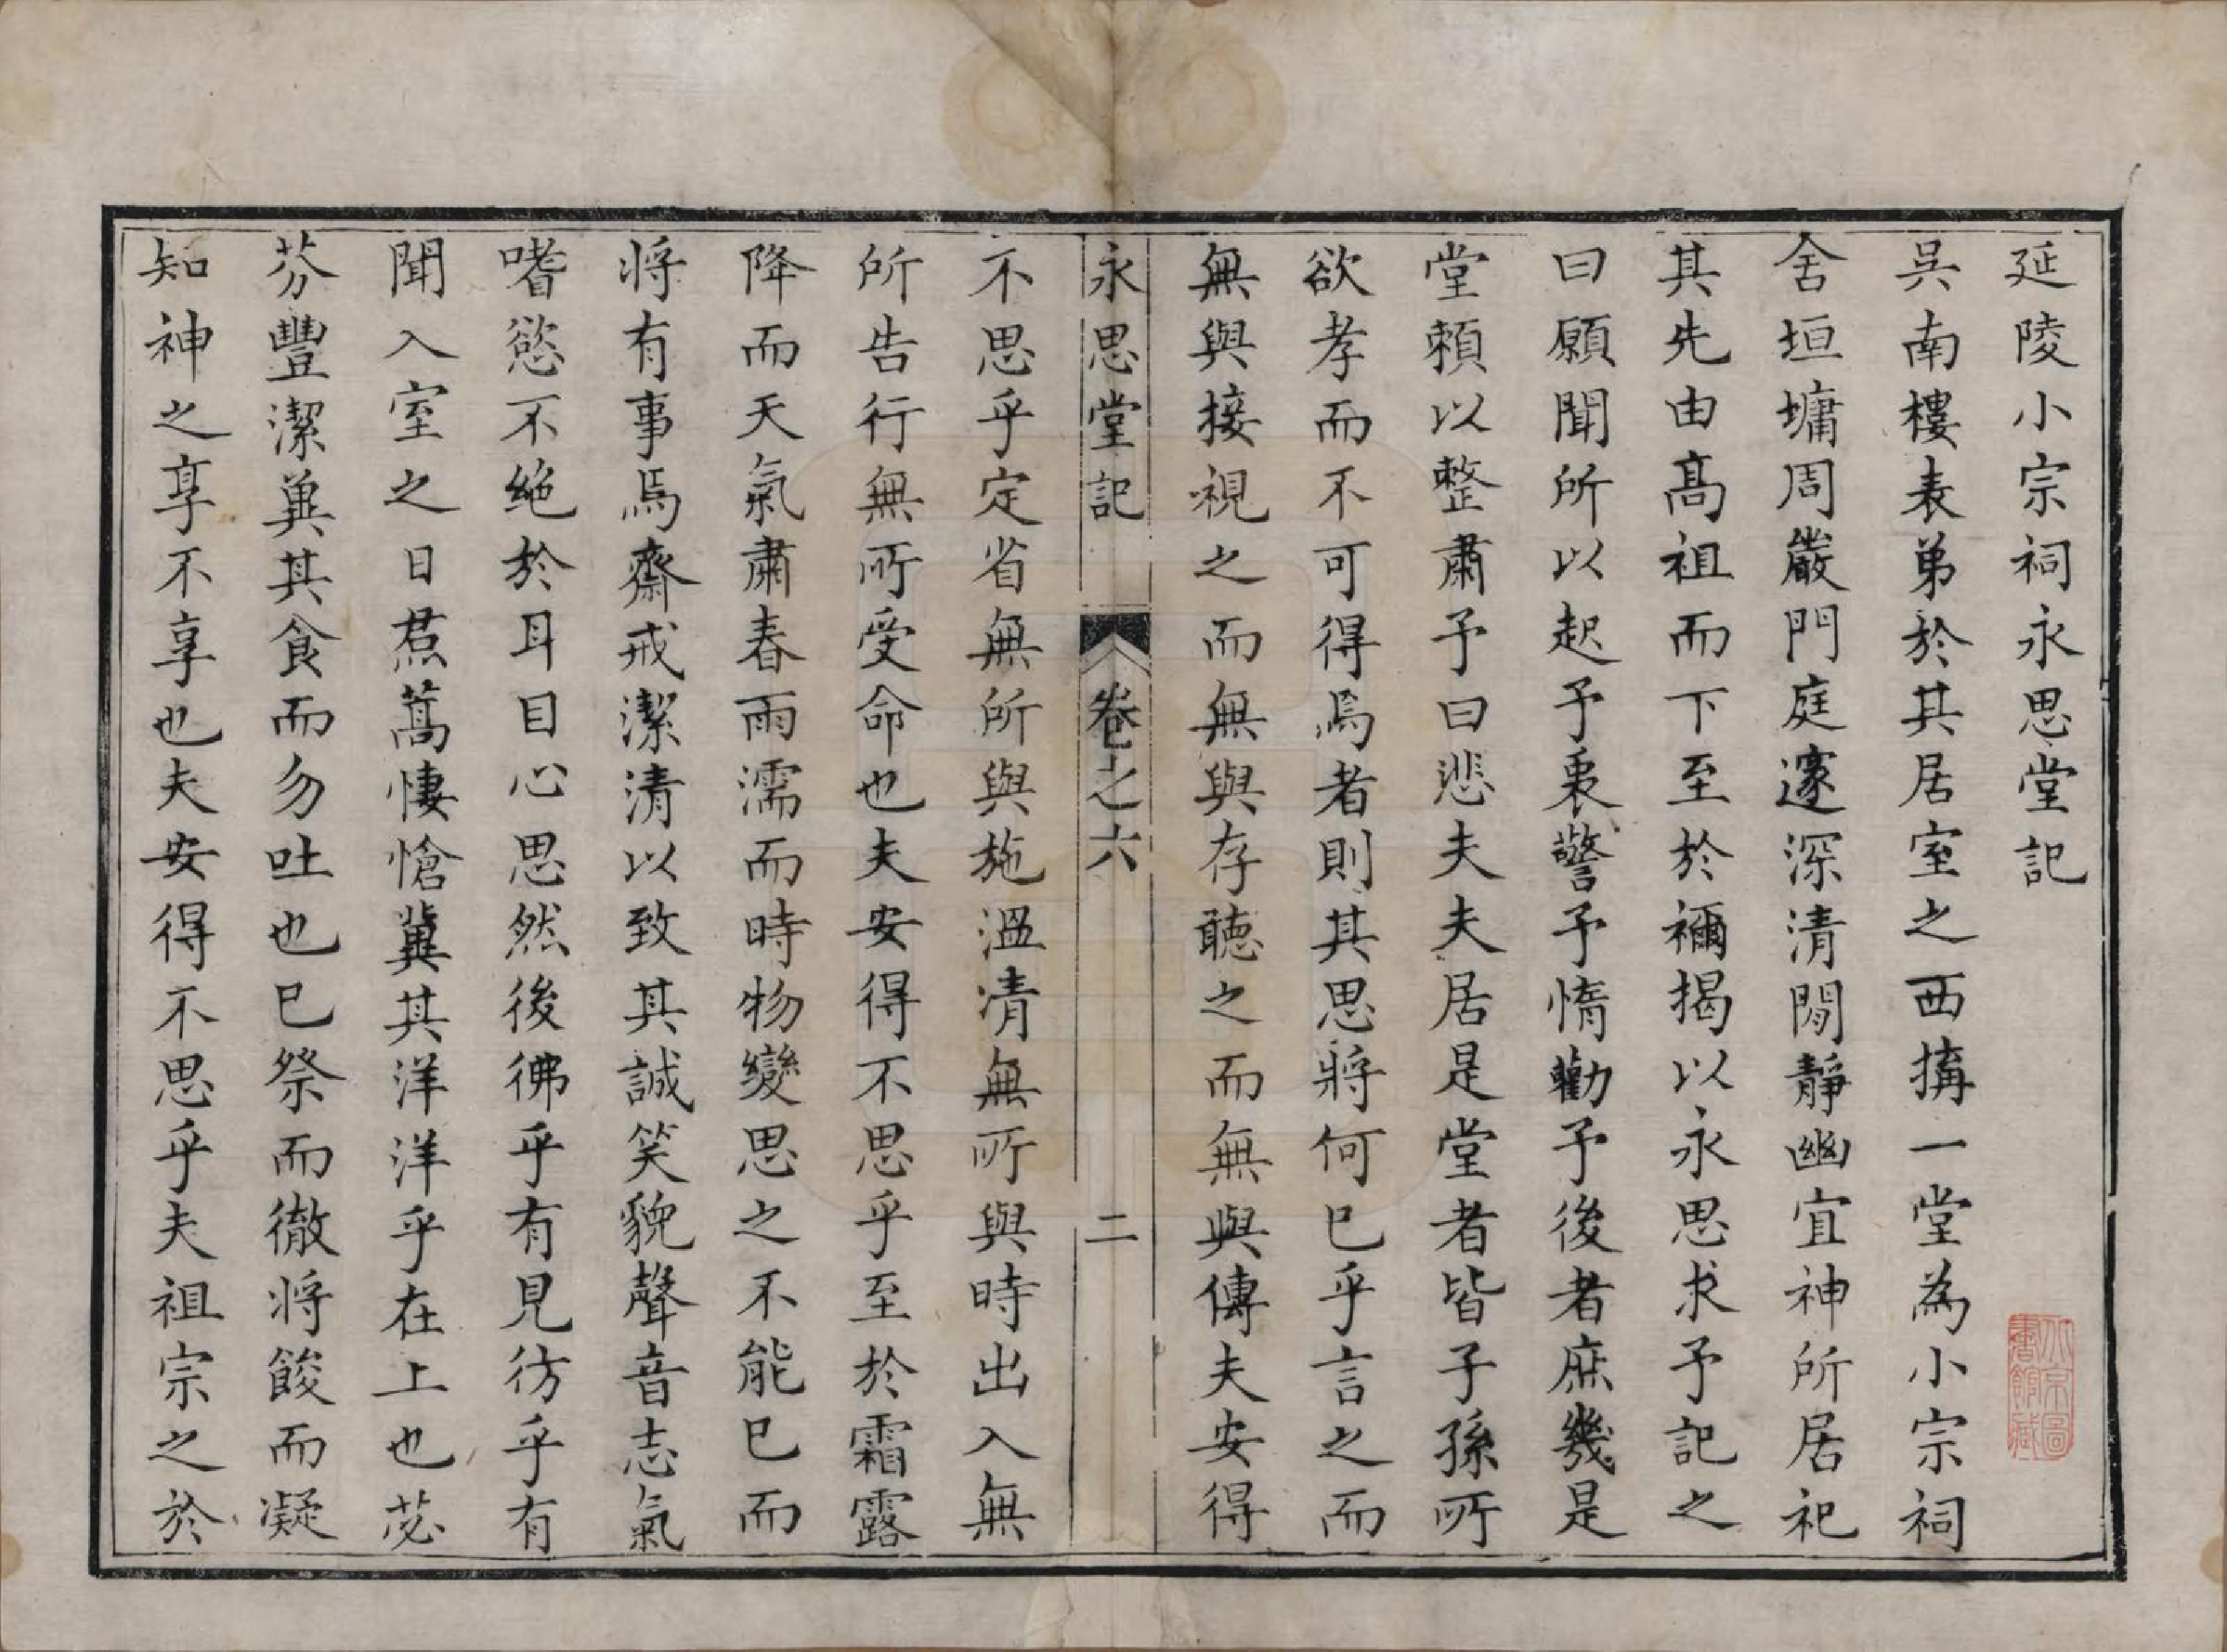 延陵小宗祠永思堂記
吳南樓表弟於其居室之西搆一堂為小宗祠
舍垣墉周嚴門庭邃深清閒靜幽宜神所居祀
其先由髙祖而下至於禰揭以永思求予記之
曰願聞所以起予衷警予惰勸予後者庶幾是
堂賴以整肅予曰悲夫夫居是堂者皆子孫所
欲孝而不可得焉者則其思將何已乎言之而
無與接視之而無與存聽之而無與傳夫安得
永思堂記 卷之六 二
不思乎定省無所與施溫凊無所與時出入無
所告行無所受命也夫安得不思乎至於霜露
降而天氣肅春雨濡而時物變思之不能已而
將有事焉齋戒潔清以致其誠笑貌聲音志氣
嗜慾不絕於耳目心思然後彿乎有見彷乎有
聞入室之日焄蒿悽愴冀其洋洋乎在上也苾
芬豐潔冀其食而勿吐也已祭而徹將餕而凝
知神之享不享也夫安得不思乎夫祖宗之於
北京圖書館藏